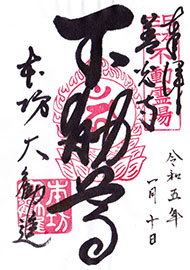 奉拝
善光寺
不動霊場
不動尊
本坊 大勧進
本坊
令和五年
一月十日